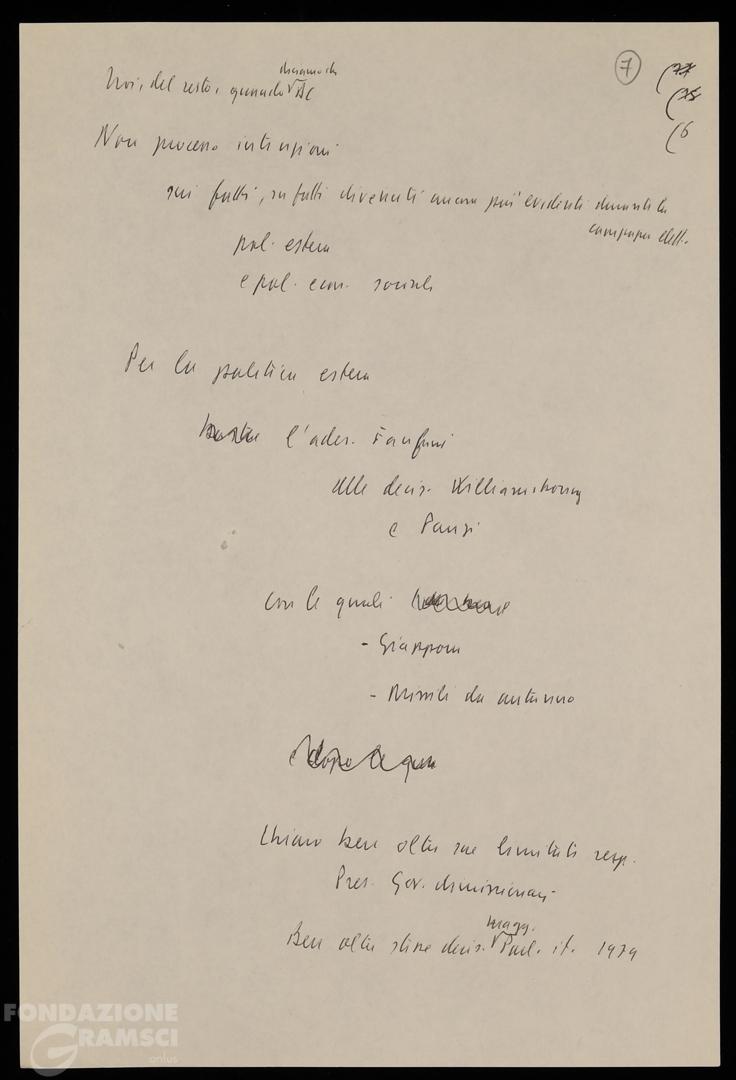 7
Noi, del resto, quando diciamo che DC
Non processo intenzioni
sui fatti, su fatti divenuti ancora più evidenti durante la
campagna elett.
pol. estera
e pol. econ. sociale
Per la politica estera
l'ades. Fanfani
alle decis. Williamsbourg
e Parigi
con le quali
- Giappone
- Missili da autunno
e dopo le qua
Chiaro ben oltre sue limitate resp.
Pres. Gov. dimissionari
Ben oltre stesse decis. magg. Parl. it. 1979
FONDAZIONE
GRAMSCI
onlus